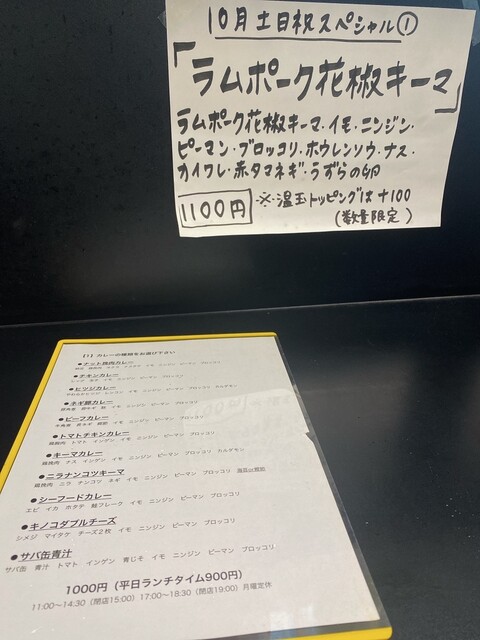 10月土日祝スペシャル①
「ラムポーク花椒キーマ」
ラムポーク花椒キーマ・イモ・ニンジン・
ピーマン・ブロッコリ・ホウレンソウ・ナス・
カイワレ・赤タマネギ・うずらの卵
1100円
※温玉トッピングは+100
(数量限定)
【1】カレーの種類をお選び下さい
●ナット挽肉カレー
●チキンカレー
●ヒツジカレー
●ネギ豚カレー
●ビーフカレー
●トマトチキンカレー
鶏胸肉 トマト インゲン イモ ニンジン ピーマン ブロッコリ
●キーマカレー
鶏挽肉 ナス インゲン イモ ニンジン ピーマン ブロッコリ カルダモン
●ニラナンコツキーマ
鶏挽肉 ニラ ナンコツ ネギ イモ ニンジン ピーマン ブロッコリ
●シーフードカレー
エビ イカ ホタテ 鮭フレーク イモ ニンジン ピーマン ブロッコリ
●キノコダブルチーズ
シメジ マイタケ チーズ2枚 イモ ニンジン ピーマン ブロッコリ
●サバ缶青汁
サバ缶 青汁 トマト インゲン 青じそ イモ ニンジン ピーマン ブロッコリ
1000円(平日ランチタイム900円)
11:00〜14:30(閉店15:00) 17:00〜18:30(閉店19:00) 月曜定休